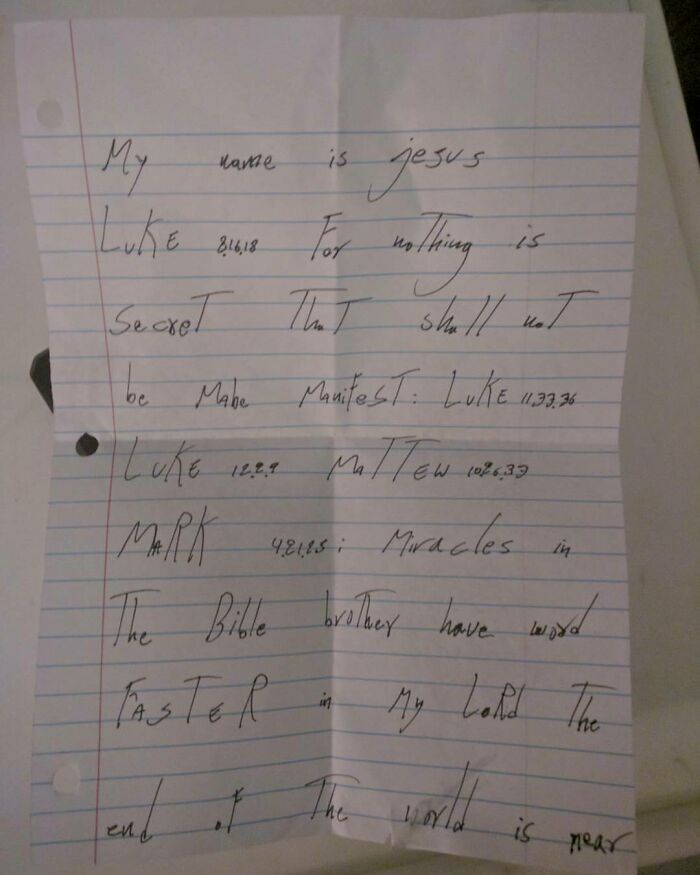 My name is jesus
LUKE 8.16.18 For noThing is
SecreT ThaT shall noT
be Mabe ManiFesT: LUKE 11.33.36
LUKE 12.2.9 MaTTEW 10.26.33
MARK 4.21.25: Miracles in
The Bible broTher have word
FASTER in My LoRd The
end of The world is near